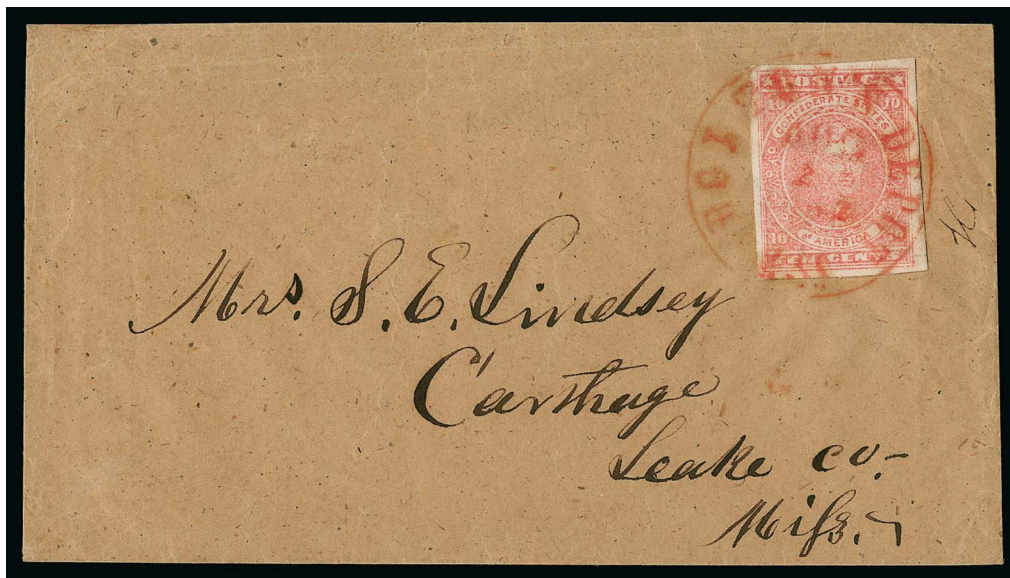 POSTAGE
10 10
CONFEDERATE STATES
OF AMERICA
10
TEN CENTS
Mrs. S. E. Lindsey
Carthage
Leake co.
Miss.